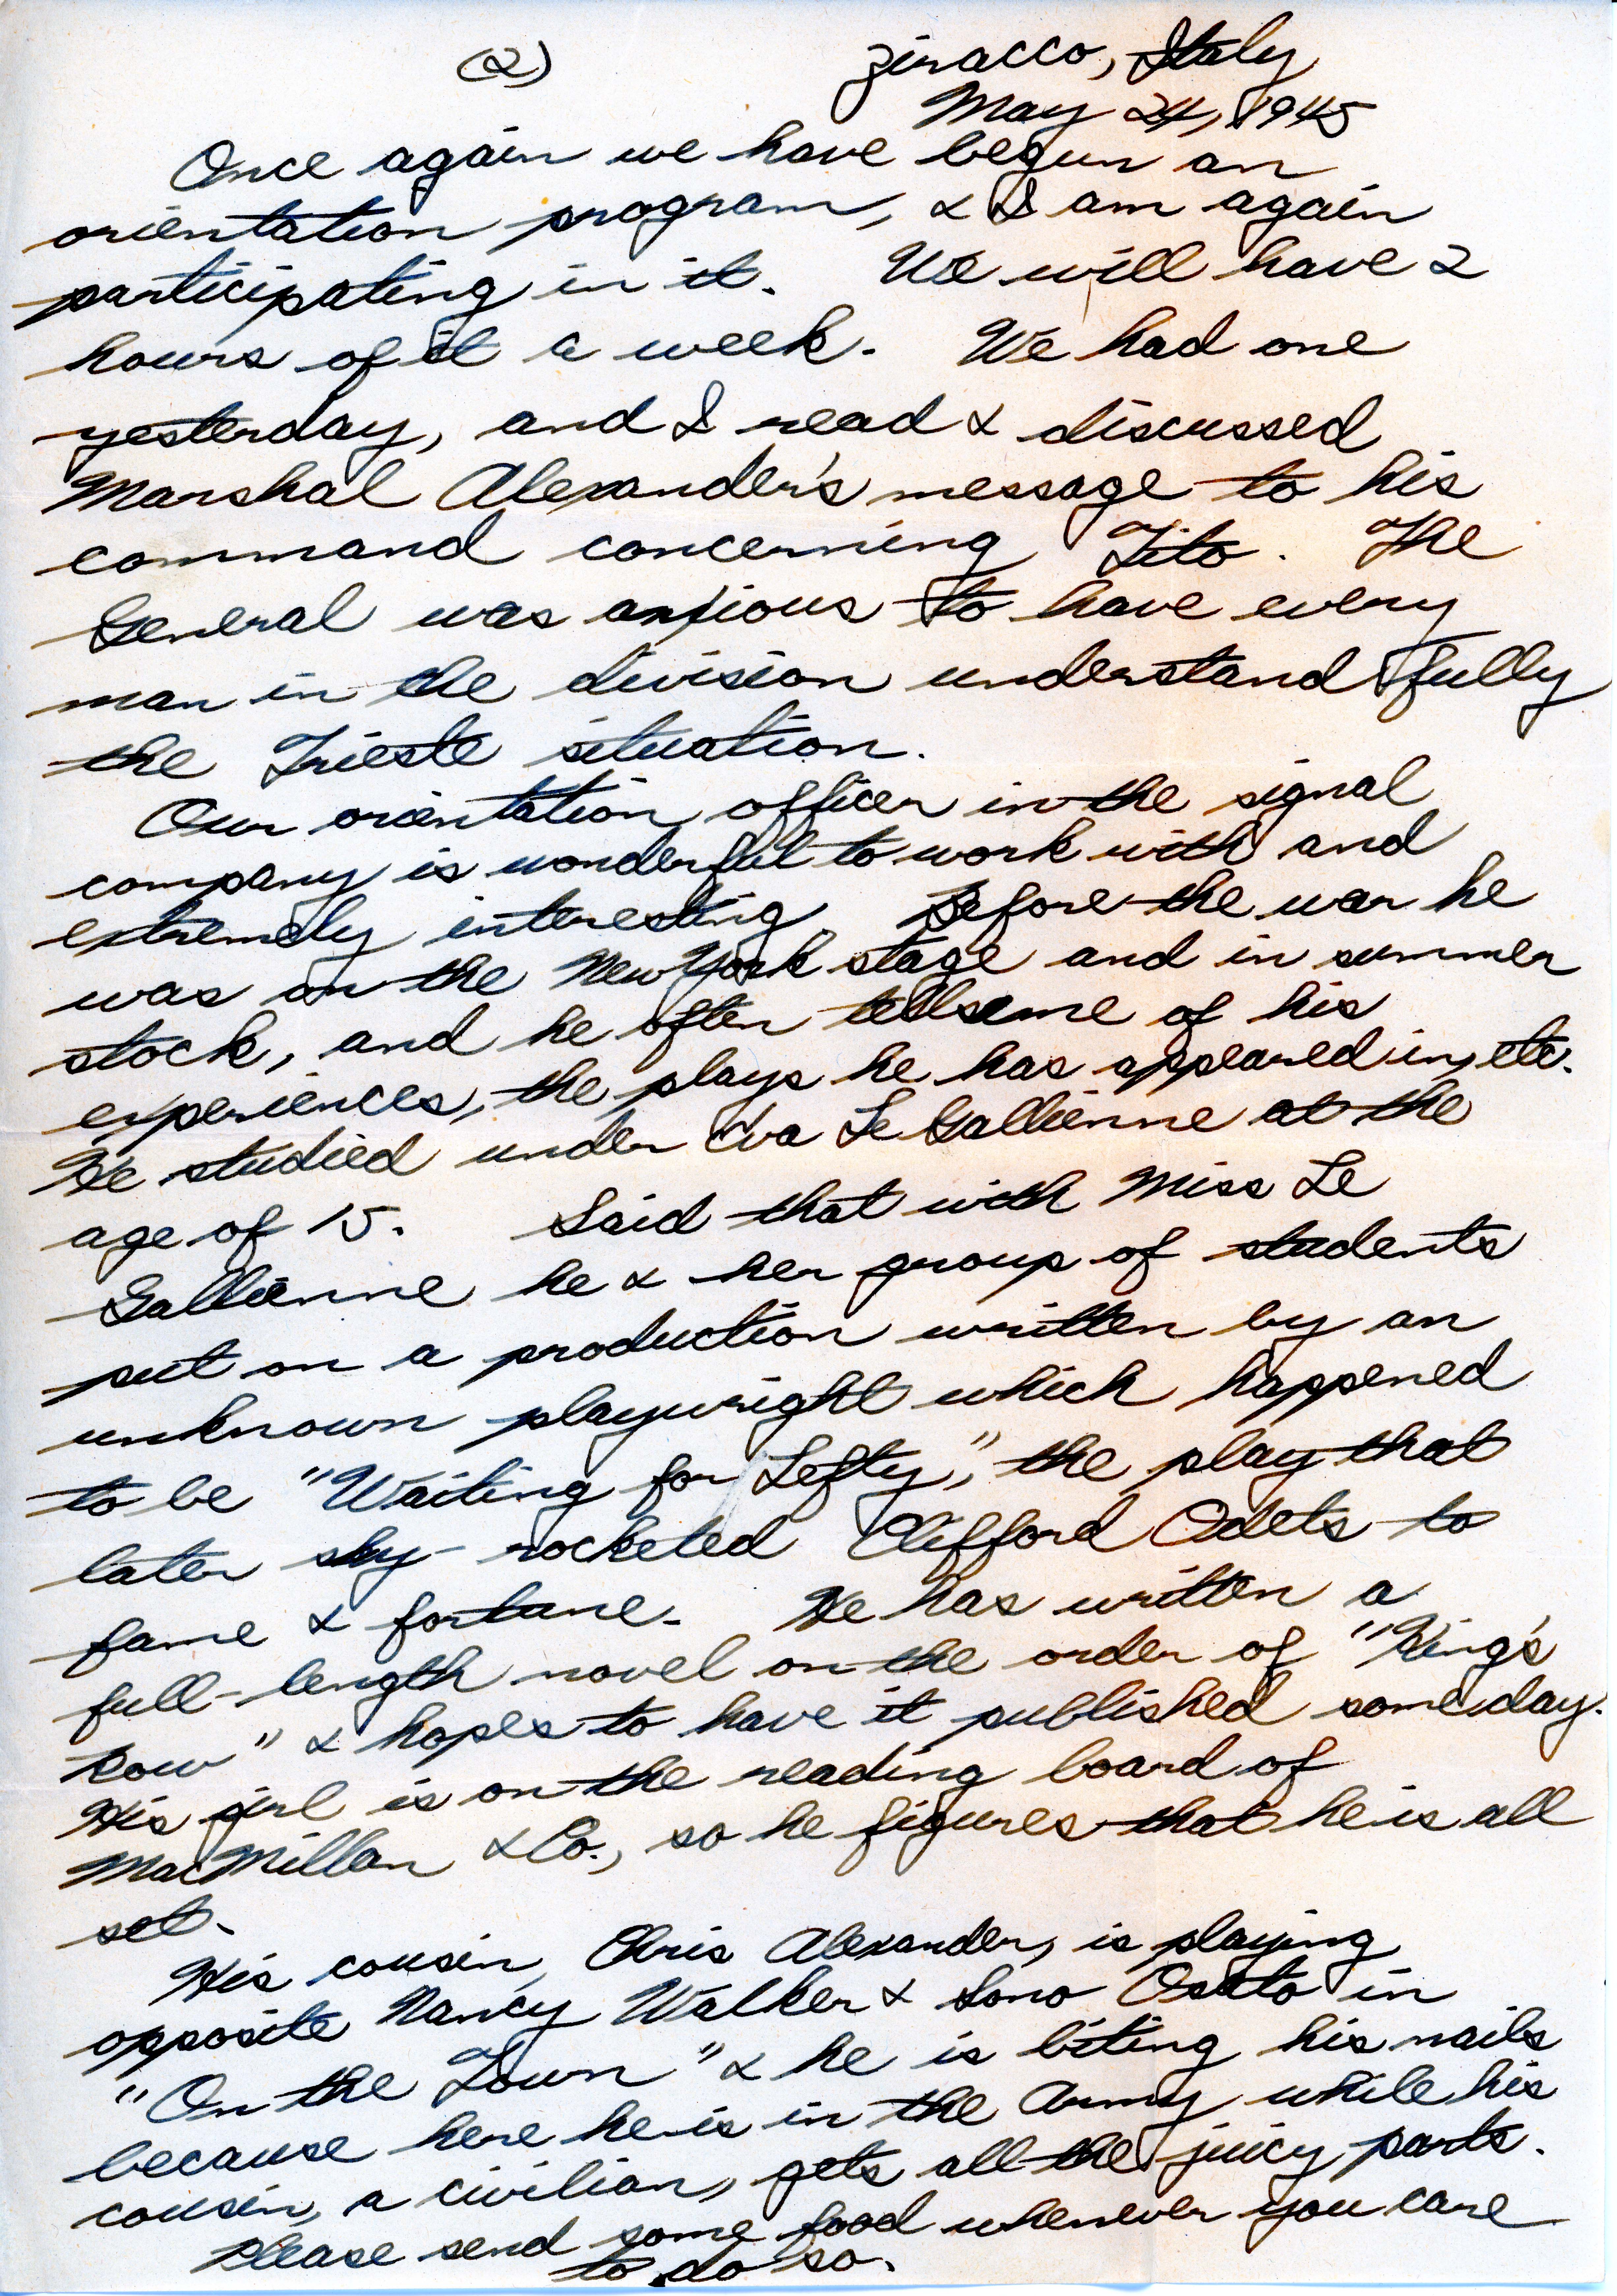 (2)
Ziracco, Italy
May 24, 1945
Once again we have begun an
orientation program, & I am again
participating in it. We will have 2
hours of it a week. We had one
yesterday, and I read & discussed
Marshal Alexander's message to his
command concerning Tito. The
General was anxious to have every
man in the division understand fully
the Trieste situation.
Our orientation officer in the signal
company is wonderful to work with and
extremely interesting. Before the war he
was on the New York stage and in summer
stock, and he often tells me of his
experiences, the plays he has appeared in, etc.
He studied under Eva Le Gallienne at the
age of 15. Said that with Miss Le
Gallienne he & her group of students
put on a production written by an
unknown playwright which happened
to be "Waiting for Lefty," the play that
later sky-rocketed Clifford Odets to
fame & fortune. He has written a
full-length novel on the order of "King's
Row" & hopes to have it published someday.
His girl is on the reading board of
MacMillan & Co., so he figures that he is all
set.
His cousin, Chris Alexander, is playing
opposite Nancy Walker & Sono Osato in
"On the Town" & he is biting his nails
because here he is in the Army while his
cousin, a civilian, gets all the juicy parts.
Please send some food whenever you care
to do so.